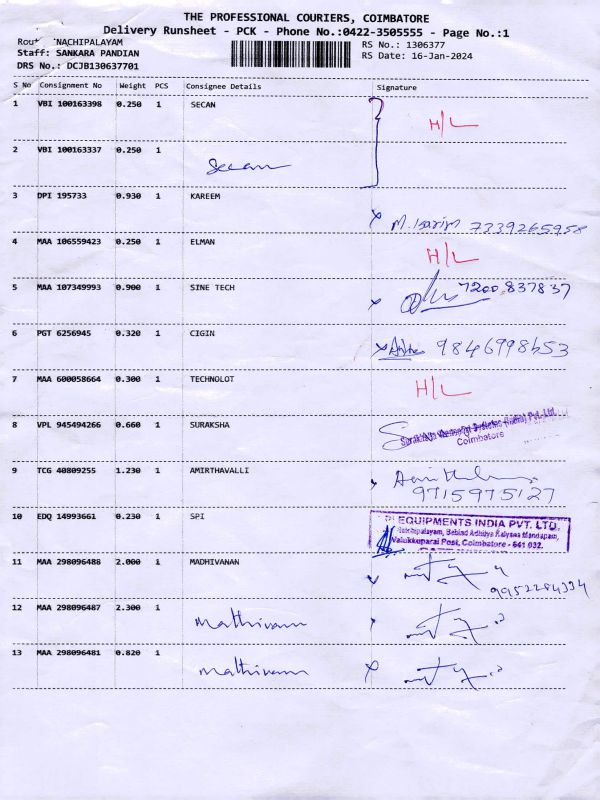 THE PROFESSIONAL COURIERS, COIMBATORE
Delivery Runsheet - PCK - Phone No.:0422-3505555 - Page No.:1
NACHIPALAYAM
RS No.: 1306377
Staff: SANKARA PANDIAN
RS Date: 16-Jan-2024
DRS No.: DCJB130637701
S No Consignment No Weight PCS Consignee Details Signature
1 VBI 100163398 0.250 1 SECAN
H/L
2 VBI 100163337 0.250 1
Secan
3 DPI 195733 0.930 1 KAREEM
7339265958
4 MAA 106559423 0.250 1 ELMAN
H/L
5 MAA 107349993 0.900 1 SINE TECH
7200837837
6 PGT 6256945 0.320 1 CIGIN
9846998653
7 MAA 600058664 0.300 1 TECHNOLOT
H/L
8 VPL 945494266 0.660 1 SURAKSHA
Pvt. Ltd.
Coimbatore
9 TCG 40809255 1.230 1 AMIRTHAVALLI
9715975127
10 EDQ 14993661 0.230 1 SPI
EQUIPMENTS INDIA PVT. LTD.
Behind Adhitya Kalyana Mandapam,
Post, Coimbatore - 641 032.
11 MAA 298096488 2.000 1 MADHIVANAN
9952284334
12 MAA 298096487 2.300 1
Mathivanan
13 MAA 298096481 0.820 1
Mathivanan